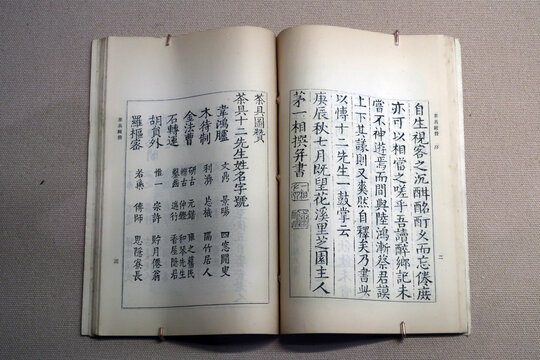 茶具圖贊 序
自生視客之沉酣酩酊久而忘倦庶
亦可以相當之嗟乎吾讀醉鄉記未
嘗不神遊焉而間與陸鴻漸蔡君謨
上下其議則又爽然自釋矣乃書此
以博十二先生一鼓掌云
庚辰秋七月既望花溪里芝園主人
茅一相撰并書
茶具圖贊
茶具十二先生姓名字號
韋鴻臚 文鼎 景暘 四窓閒叟
木待制 利濟 忘機 隔竹居人
金法曹 研古 元鍇 雍之舊民
轢古 仲鏗 和琴先生
石轉運 鑿齒 遄行 香屋隱君
胡員外 惟一 宗許 貯月僊翁
羅樞密 若藥 傅師 思隱寮長
茶具圖贊